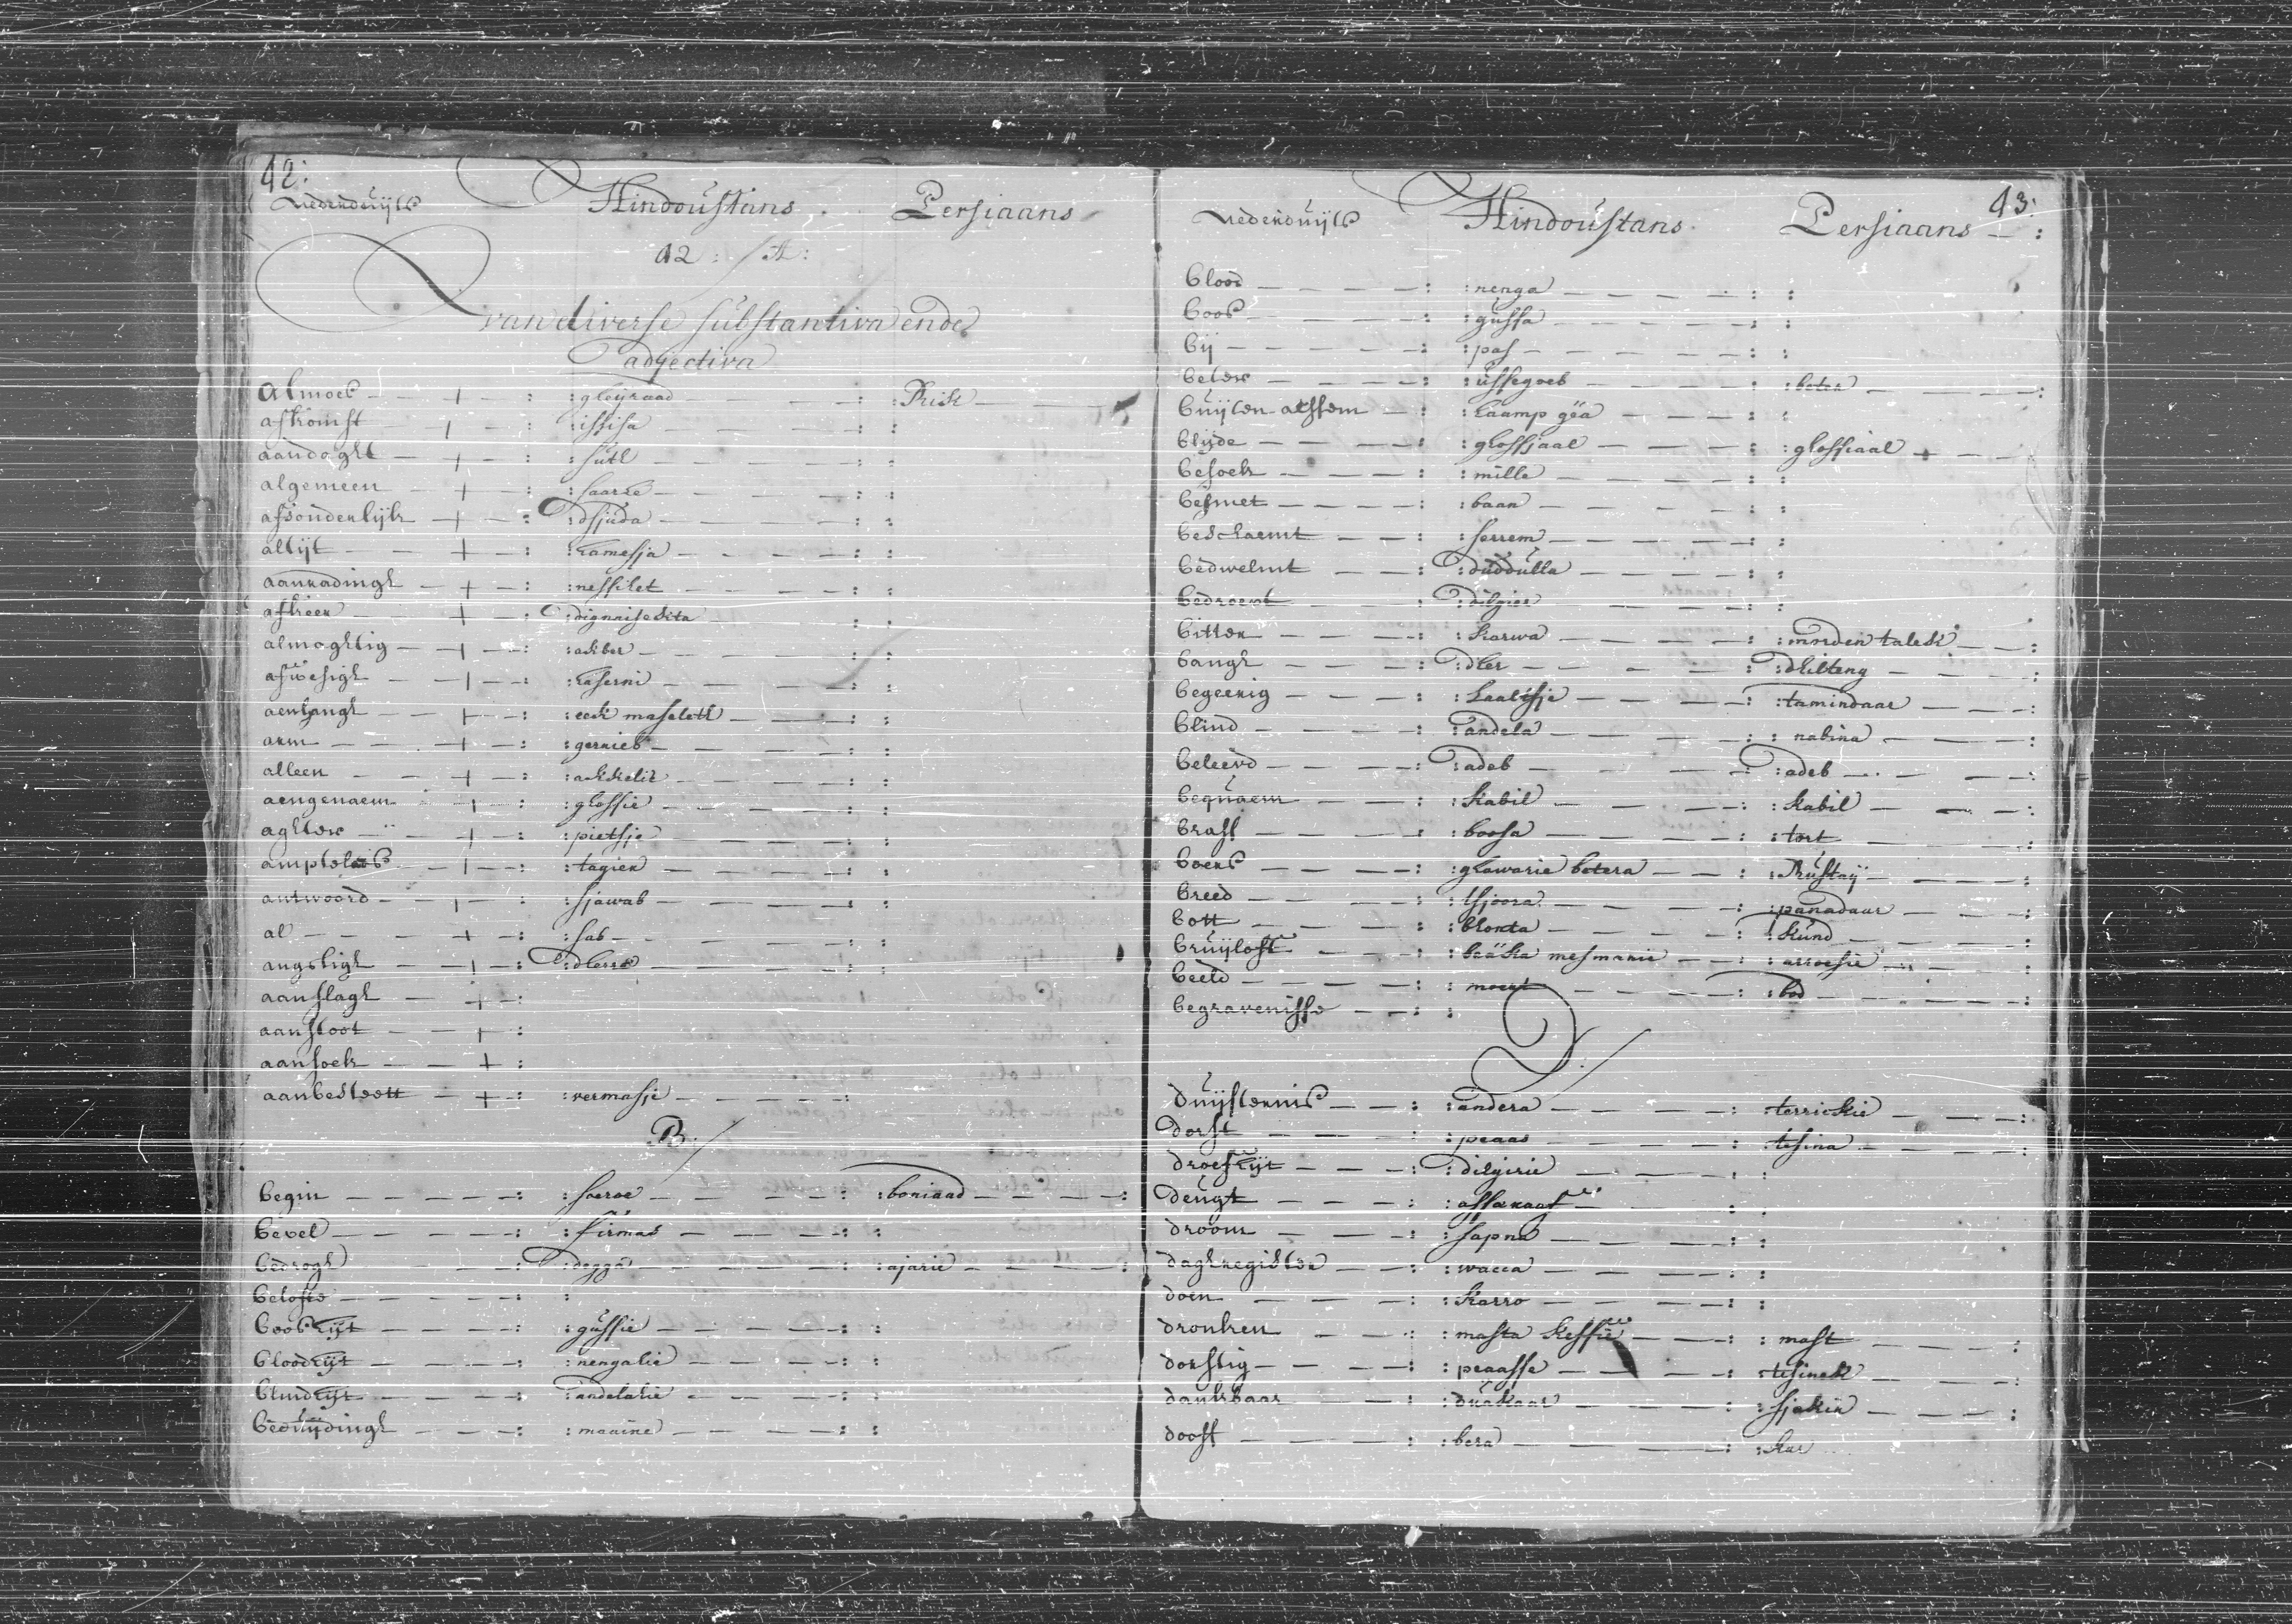 42:
Nederduijts Hindoustans Persiaans
42: A:
van diverse substantiva ende
adjectiva
Almoes : gleijraad : :
afkomst : issisa : :
aandaght : sutl : :
algemeen : saarre : :
afsonderlijk : dsjuda : :
altijt : hamesja : :
aanradingh : nessihet : :
afkeer : : :
almoghtig : akber : :
afwesigh : haserni : :
aenhangh : eek maselett : :
arm : gerrieb : :
alleen : akkelie : :
aengenaem : ghossie : :
aghter : pietsje : :
: tagier : :
antwoord : sjawab : :
al : sab : :
angstigh : dherre : :
aanslagh :
aanstoot :
aansoek :
aanbesteett : vermasje :
B:
begin : soeroe : : boniaad :
bevel : firmas : :
bedrogh : degga : : ajarie :
belofte : :
boosheijt : gussie : :
bloodheijt : nengatie : :
blindheijt : andelatie : :
beduijdingh : maaine : :
43:
Nederduijts Hindoustans Persiaans :
blood : nenga : :
boos : gussa : :
bij : pas : :
beter : ussegoeb : : beter :
buijten athem : haamp gea : :
blijde : ghossjaal : : ghossiaal
besoek : mille : :
besmet : baan : :
beschaemt : serrem : :
bedwelmt : duddulla : :
bedroeft : dilgier : :
bitter : karwa : : morden talek :
bangh : dher : : dhilteng :
begeerig : laalisje : : tamindaar :
blind : andela : : nabina :
beleevd : adeb : : adeb :
bequaem : kabil : : kabil :
brass : boosa : : tort :
boers : ghawarie betera : : Rustaij :
breed : tsjoora : : panadaar :
bott : bhonta : : kund :
bruijloft : beäka mesmanie : : arroesie :
beeld : moert : : bod :
begravenisse : :
D:
duijsternis : andera : terriekie :
dorst : peaas : : tesina :
droefheijt : dilgirie : :
deugt : assaraaf : :
droom : sapna : :
daghregister : wacca : :
doen : karro : :
dronken : masta keffie : : mast :
dorstig : peaasse : : tesinek :
dankbaar : duakaar : : sjakir :
dooff : bera : : kar